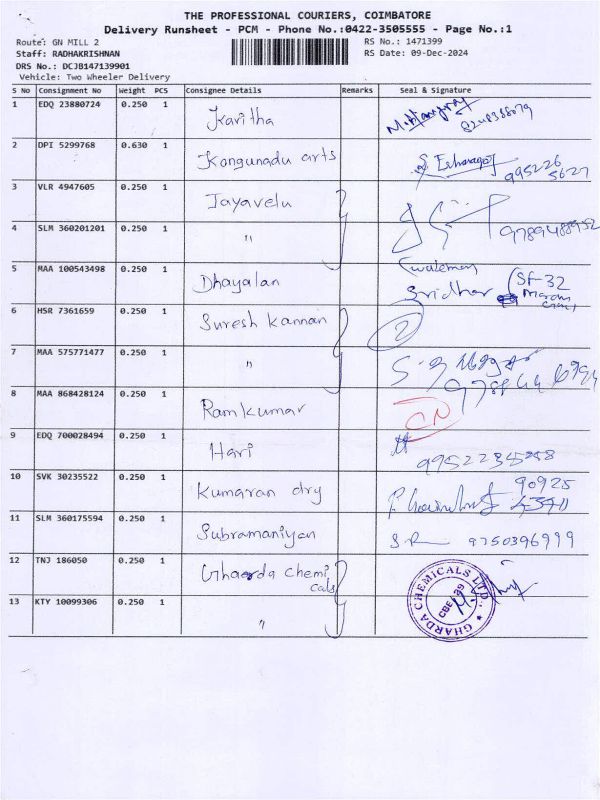 THE PROFESSIONAL COURIERS, COIMBATORE
Delivery Runsheet - PCM - Phone No.:0422-3505555 - Page No.:1
Route: GN MILL 2 RS No.: 1471399
Staff: RADHAKRISHNAN RS Date: 09-Dec-2024
DRS No.: DCJB147139901
Vehicle: Two Wheeler Delivery
S No Consignment No Weight PCS Consignee Details Remarks Seal & Signature
1 EDQ 23880724 0.250 1 Kavitha
2 DPI 5299768 0.630 1 Kongunadu arts 995226 5627
3 VLR 4947605 0.250 1 Jayavelu
4 SLM 360201201 0.250 1 " 9789488952
5 MAA 100543498 0.250 1 Dhayalan Sridhar SF-32
6 HSR 7361659 0.250 1 Suresh Kannan 2
7 MAA 575771477 0.250 1 "
8 MAA 868428124 0.250 1 Ramkumar CN
9 EDQ 700028494 0.250 1 Hari
10 SVK 30235522 0.250 1 Kumaran dry 90925
11 SLM 360175594 0.250 1 Subramaniyan 9750396999
12 TNJ 186050 0.250 1 Gharda chemi
cals
13 KTY 10099306 0.250 1 "
GHARDA CHEMICALS LTD.